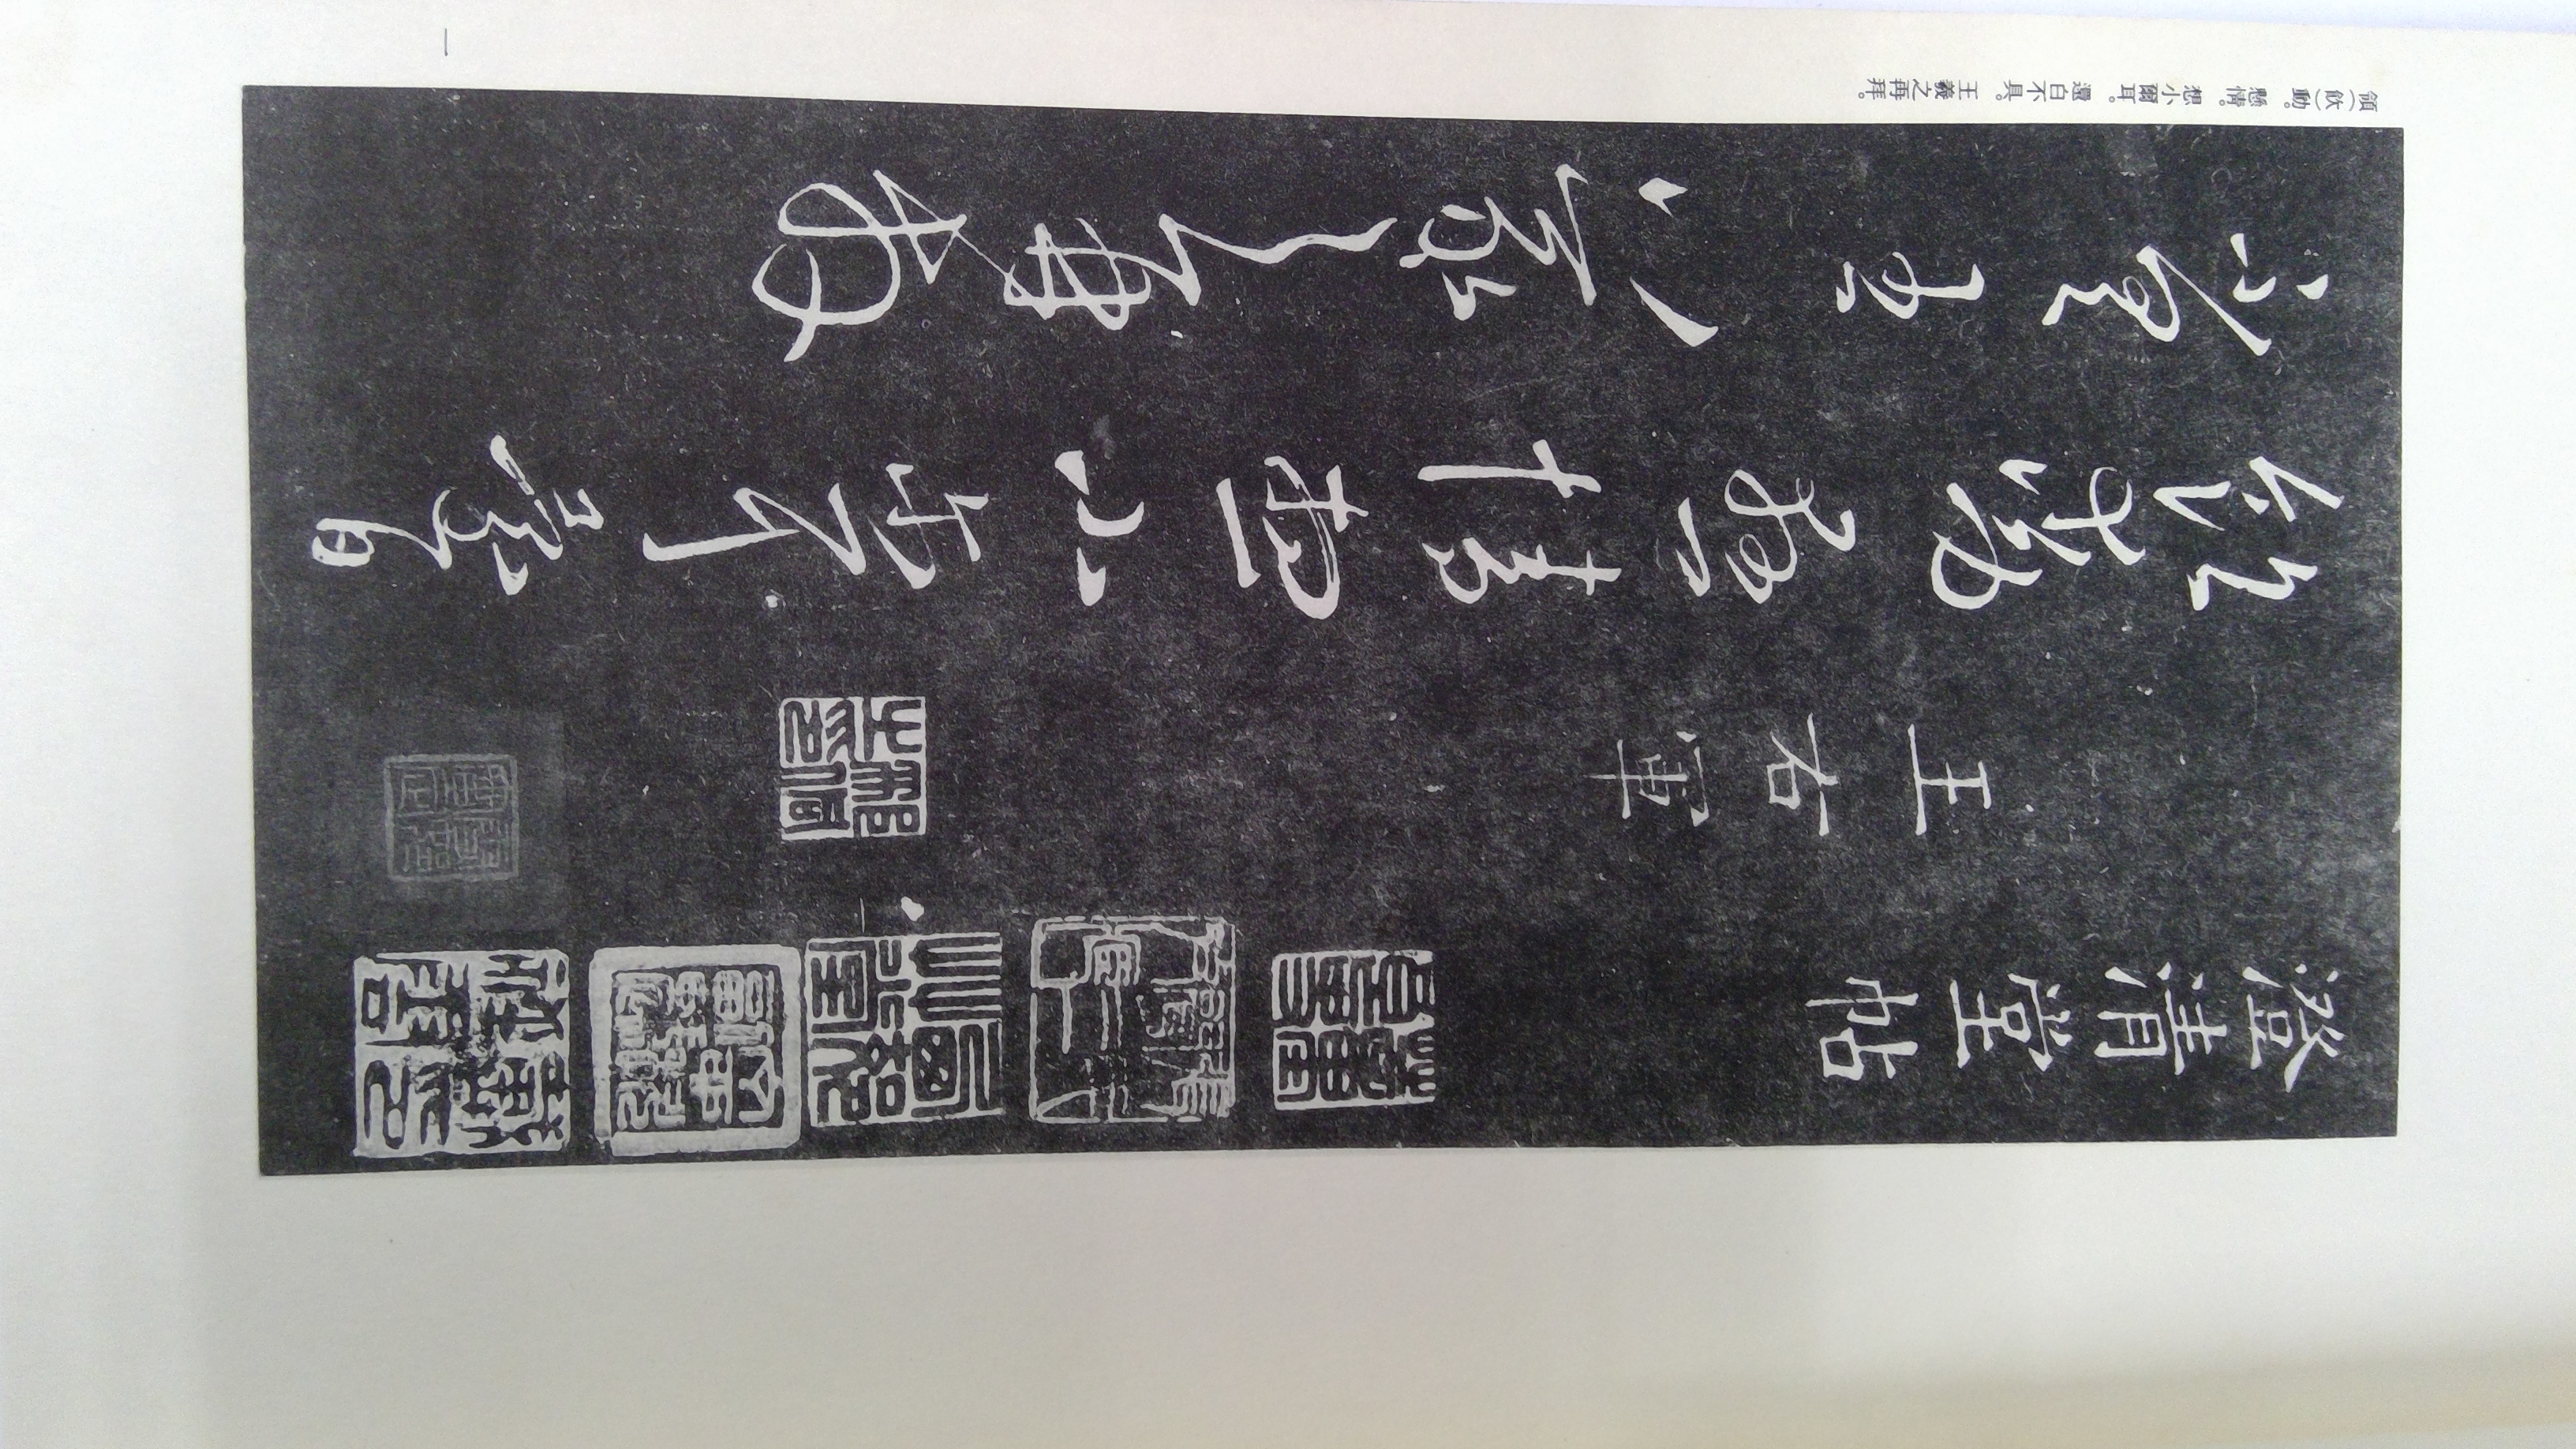 澄清堂帖
王右軍
邢侗之印
飲動懸情想小爾耳還白
不具王羲之再拜
領(飲)動。懸情。想小爾耳。還白不具。王羲之再拜。
一